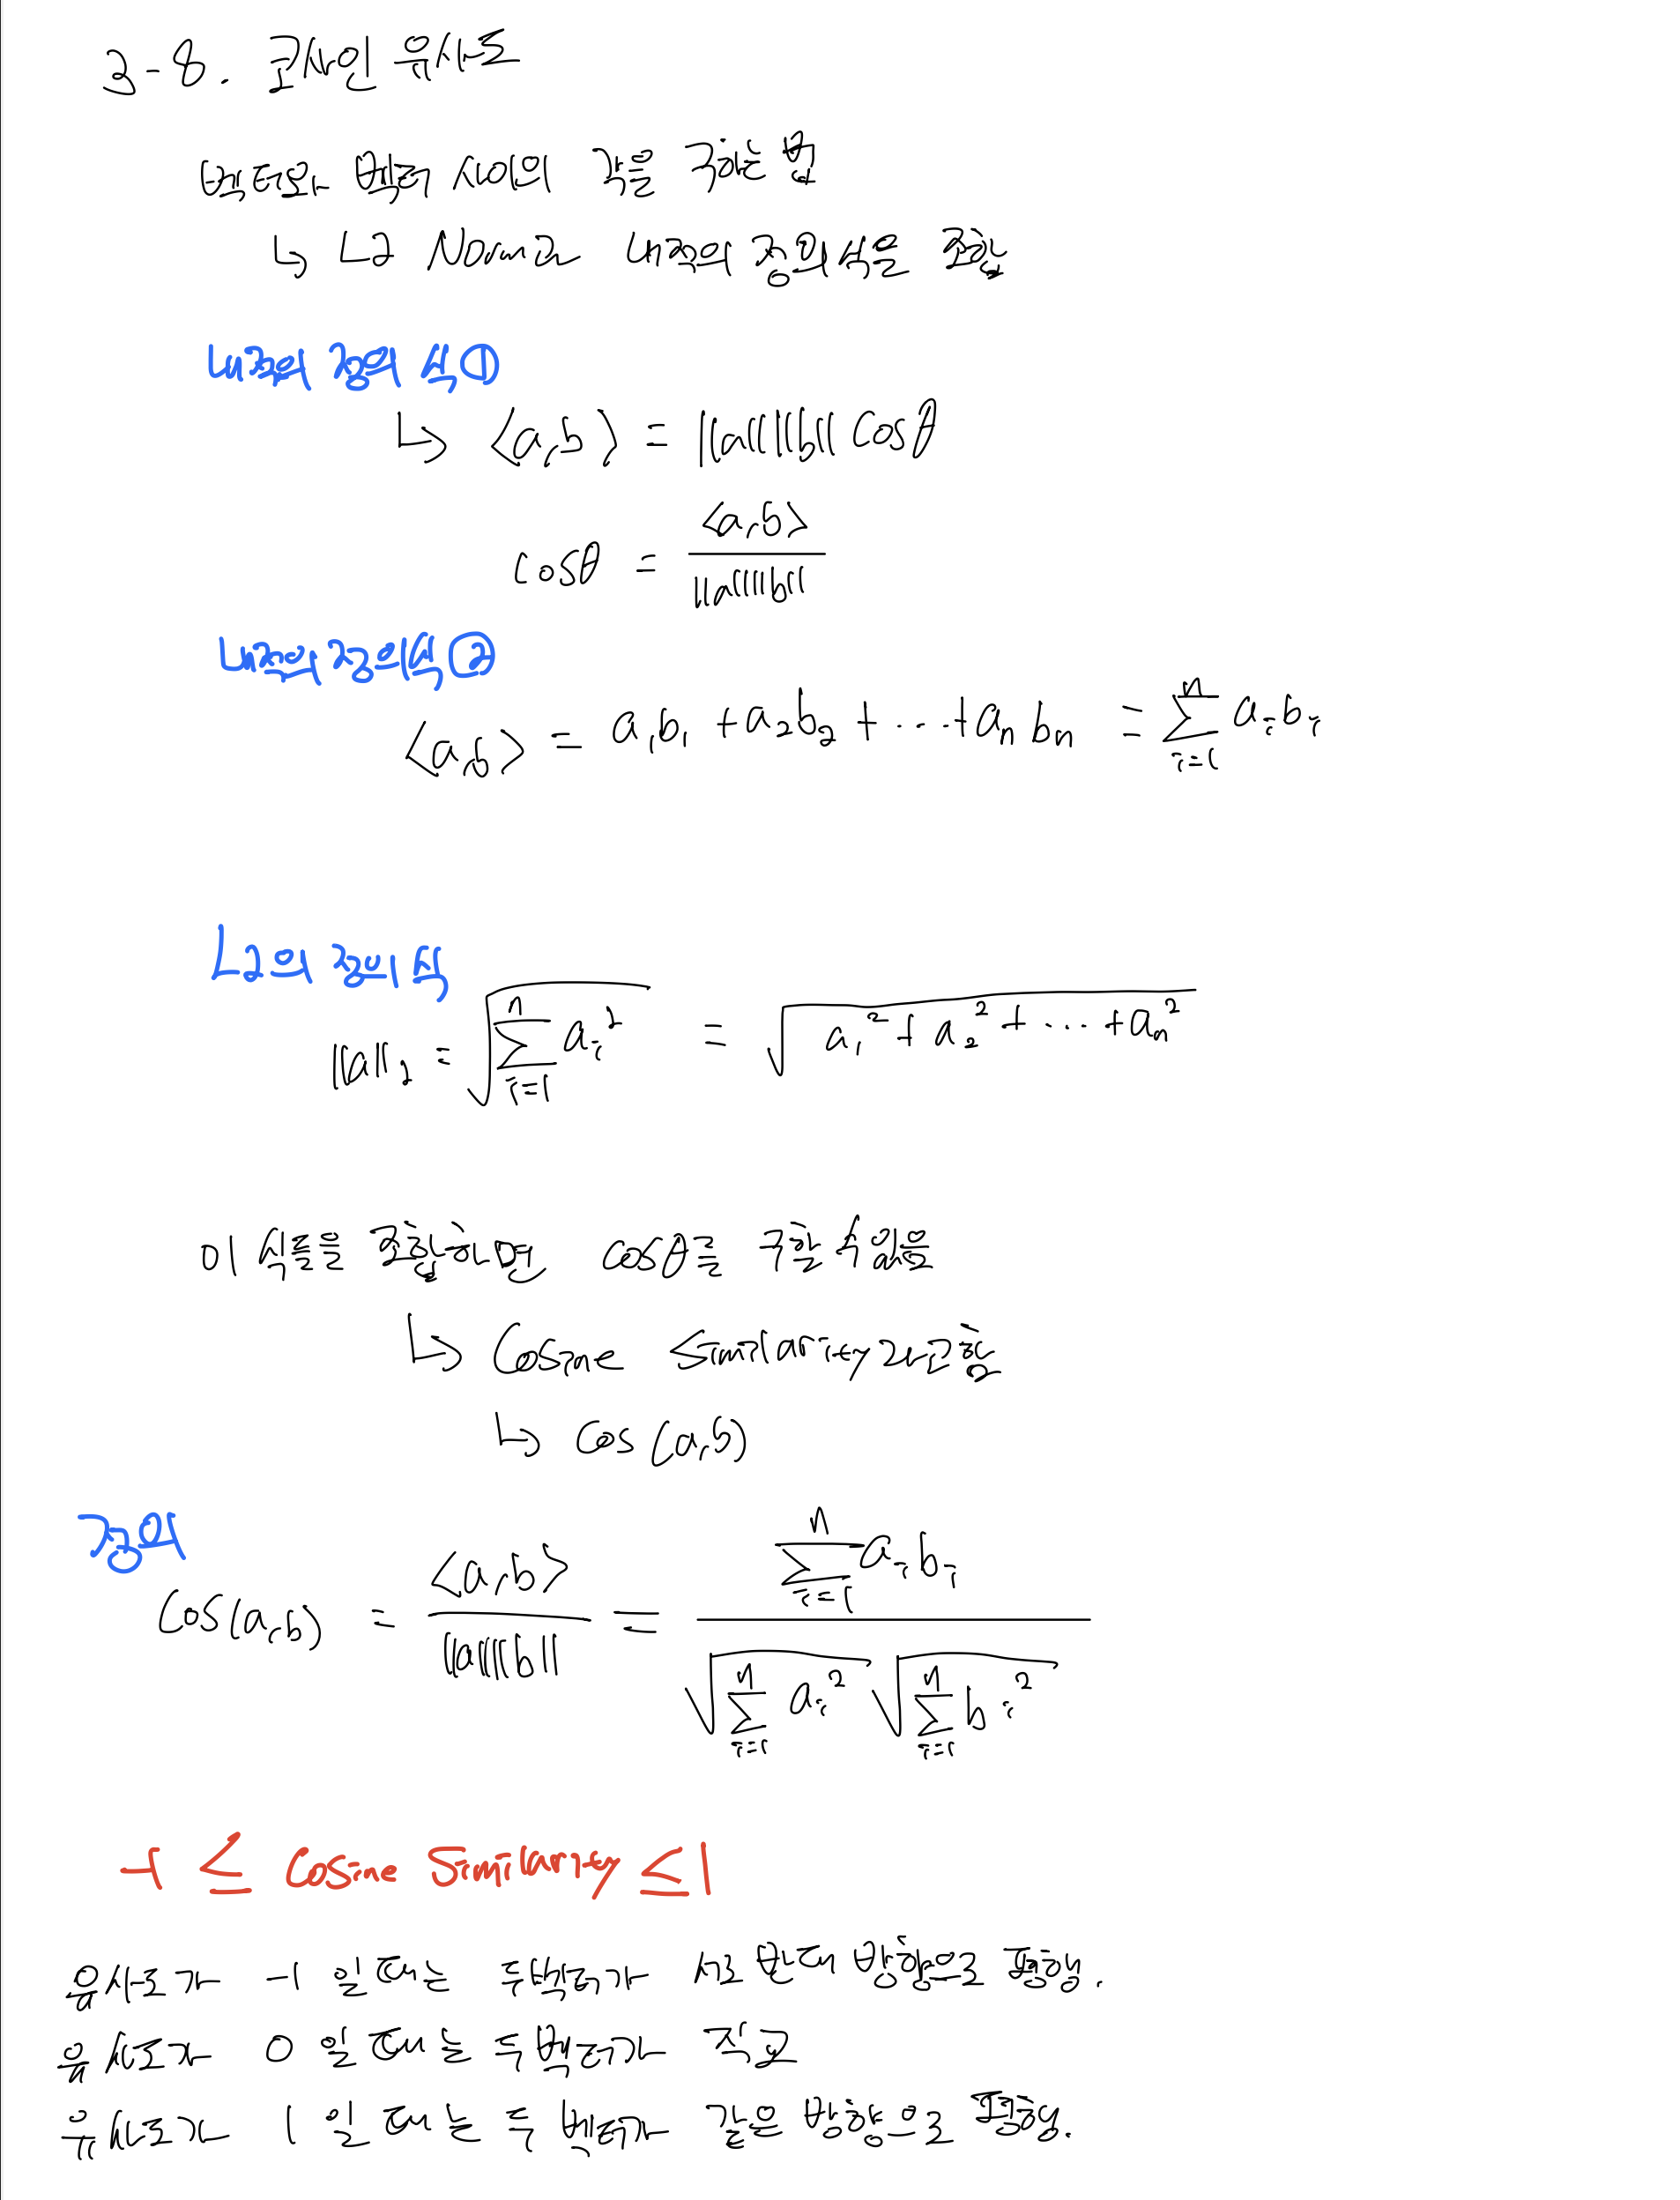 3-8. 코사인 유사도
벡터와 벡터 사이의 각을 구하는 법
↳ L2 Norm과 내적의 정의식을 조합
내적의 정의 식①
↳ <a,b> = ||a||||b|| cosθ
cosθ = <a,b> / ||a||||b||
내적의 정의식②
<a,b> = a₁b₁ + a₂b₂ + ... + aₙbₙ = Σ(i=1→n) aᵢbᵢ
L2의 정의 식
||a||₂ = √(Σ(i=1→n) aᵢ²) = √(a₁² + a₂² + ... + aₙ²)
이 식들을 조합하면 cosθ를 구할 수 있음
↳ Cosine Similarity라고 함
↳ cos(a,b)
정의
cos(a,b) = <a,b> / ||a||||b|| = Σ(i=1→n) aᵢbᵢ / √(Σ(i=1→n) aᵢ²) √(Σ(i=1→n) bᵢ²)
-1 ≤ Cosine Similarity ≤ 1
유사도가 -1 일 때는 두 벡터가 서로 반대 방향으로 평행.
유사도가 0 일 때는 두 벡터가 직교
유사도가 1 일 때는 두 벡터가 같은 방향으로 평행.